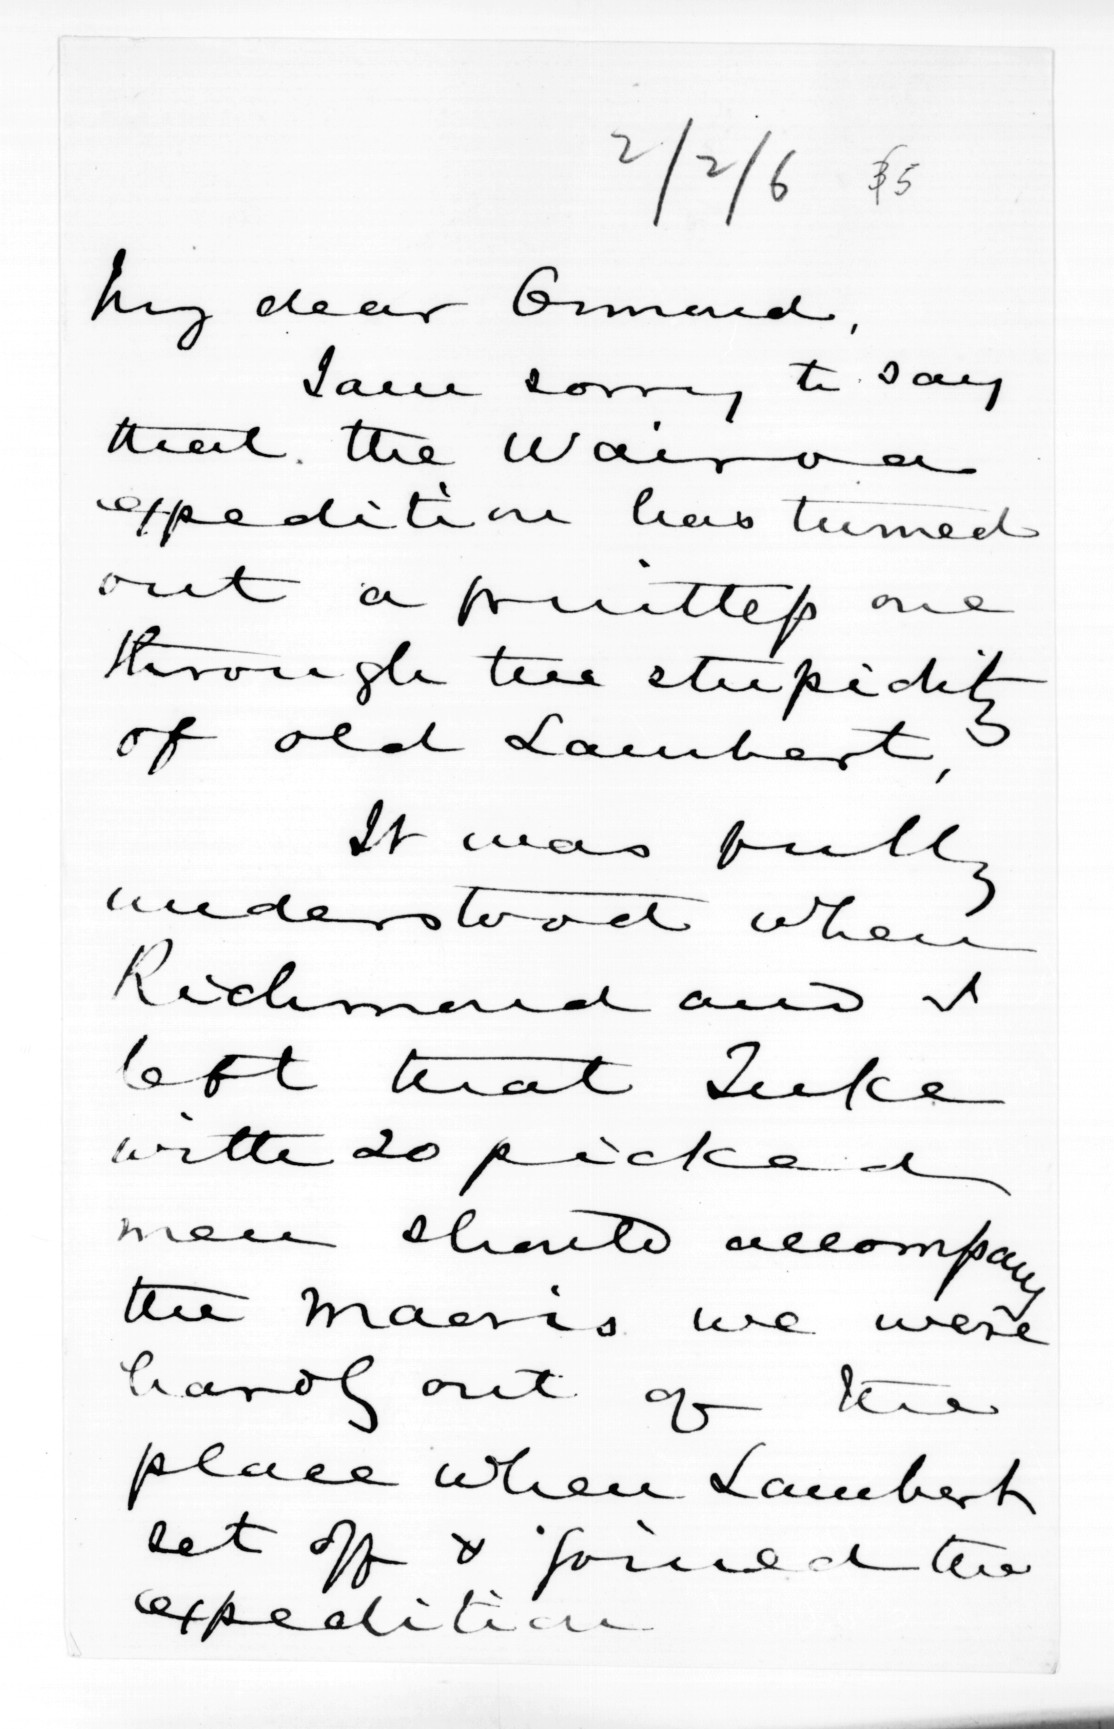 2/2/6 $5
My dear Ormond,
I am sorry to say
that the Wairoa
expedition has turned
out a fruitless one
through the stupidity
of old Lambert,
It was fully
understood when
Richmond and I
left that Tuke
with 20 picked
men should accompany
the Maoris we were
hardly out of the
place when Lambert
set off & joined the
expedition